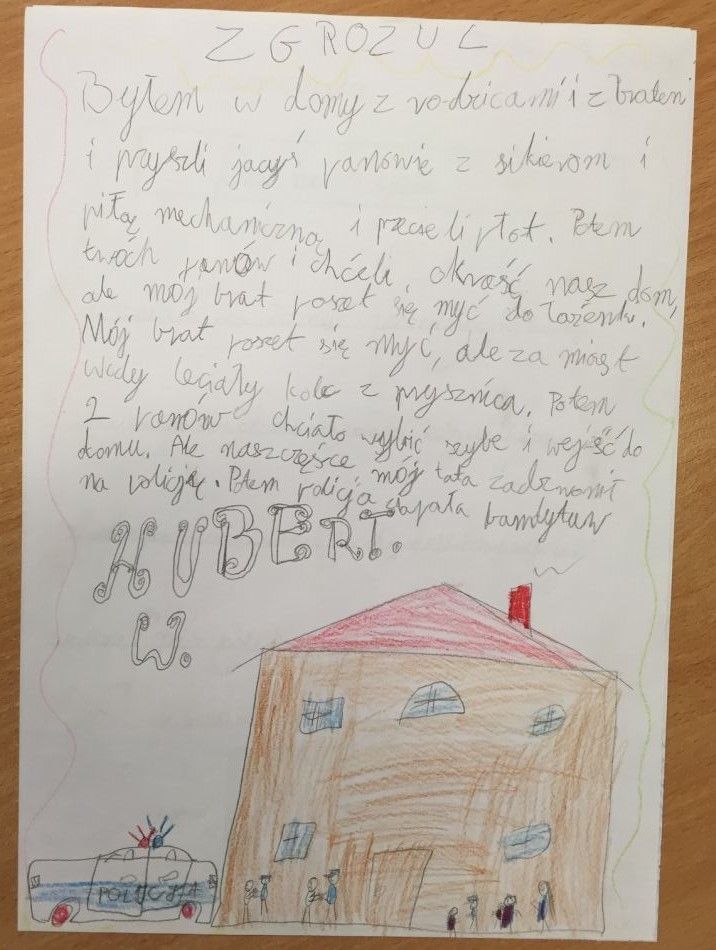 ZGROZUL
Byłem w domy z ro-dzicami i z bratem
i pryszli jacyś panowie z sikierom i
piłą mechaniczną i przecieli płot. Potem
twóch panów i chćeli okraść nasz dom,
ale mój brat poszet się myć do łazienki.
Mój brat poszet się myć, ale za miast
wody leciały kole z prysznica. Potem
2 panów chciało wybić szybe i wejść do
domu. Ale naszczęsce mój tata zadzwonił
na policję. Potem policja złapała bandytuw
HUBERT.
W.
POLICYJA